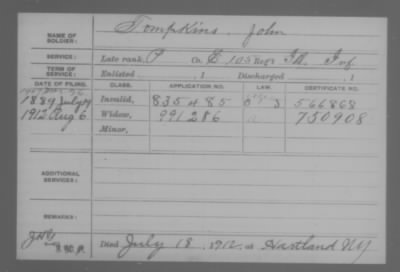 NAME OF SOLDIER: Tompkins, John
SERVICE: Late rank, P Co. E 105 Reg't Ill. Inf.
TERM OF SERVICE: Enlisted , 1 Discharged , 1
DATE OF FILING. CLASS. APPLICATION NO. LAW. CERTIFICATE NO.
1889 July Invalid, 835485 566868
1912 Aug 6 Widow, 991286 750908
Minor,
ADDITIONAL SERVICES:
REMARKS:
Died July 18, 1912, at Hartland NY